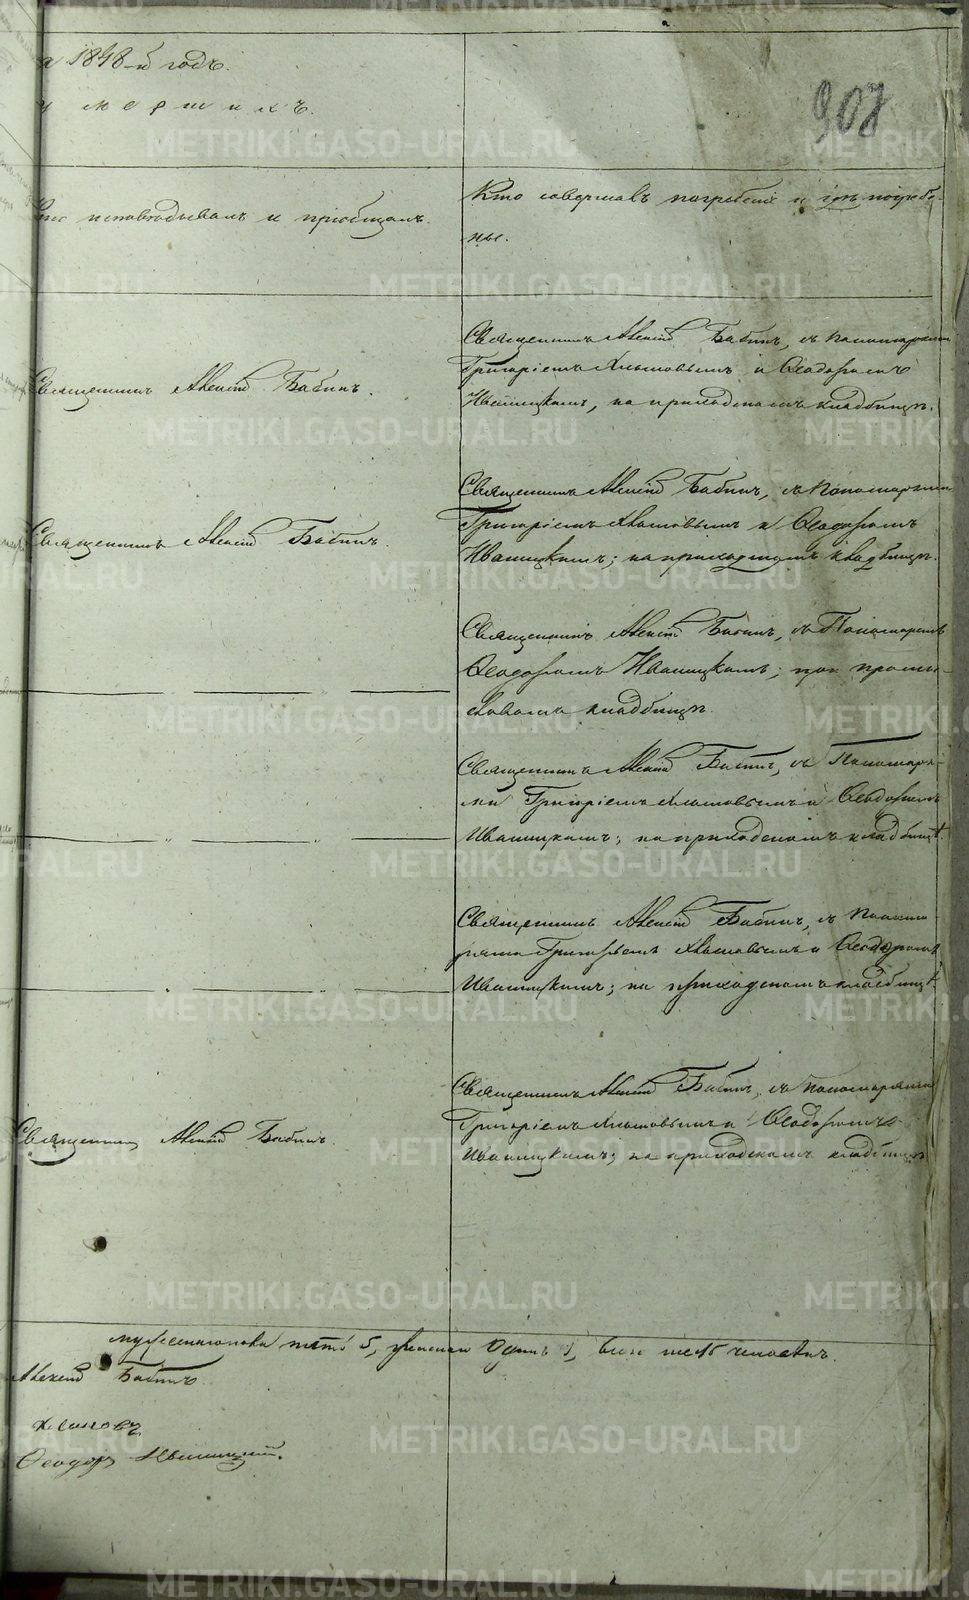 1848-й годъ.
умершихъ.
908
Кто исповѣдывалъ и пріобщалъ.
Кто совершалъ погребеніе и гдѣ погребе-
ны.
Священникъ Алексій Бабинъ.
Священникъ Алексій Бабинъ, съ Пономарями
Григоріемъ и Ѳеодоромъ
Ивашицкимъ, на приходскомъ кладбищѣ.
Священникъ Алексій Бабинъ.
Священникъ Алексій Бабинъ, съ Пономарями
Григоріемъ и Ѳеодоромъ
Ивашицкимъ; на приходскомъ кладбищѣ.
Священникъ Алексій Бабинъ, съ Пономаремъ
Ѳеодоромъ Ивашицкимъ; при
кладбищѣ.
Священникъ Алексій Бабинъ, съ Пономаря-
ми Григоріемъ и Ѳеодоромъ
Ивашицкимъ; на приходскомъ кладбищѣ.
Священникъ Алексій Бабинъ, съ Понома-
рями Григоріемъ и Ѳеодоромъ
Ивашицкимъ; на приходскомъ кладбищѣ.
Священникъ Алексій Бабинъ.
Священникъ Алексій Бабинъ, съ Пономарями
Григоріемъ и Ѳеодоромъ
Ивашицкимъ; на приходскомъ кладбищѣ
мужескаго пола пять 5, женска одинъ 1, всего шесть человѣкъ.
Алексій Бабинъ
Ѳеодоръ Ивашицкій.
METRIKI.GASO-URAL.RU